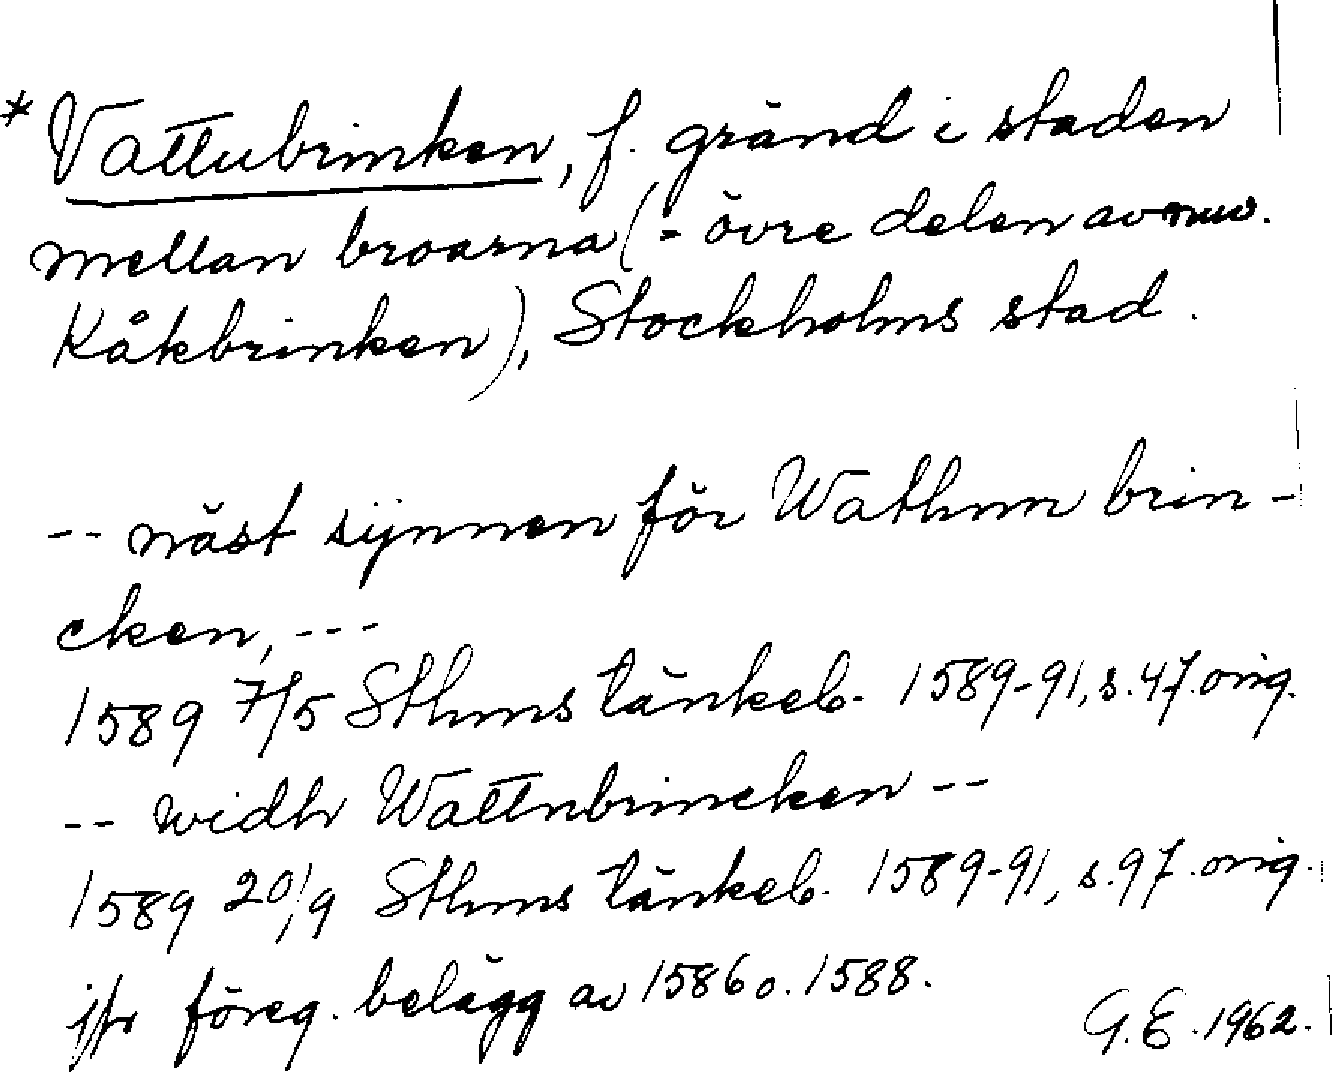 * Vattubrinken, f. gränd i staden
mellan broarna (= övre delen av nuv.
Kåkbrinken), Stockholms stad.
-- näst sijnnen för Wathnn brin-
cken, ---
1589 7/5 Sthms tänkeb. 1589-91, s. 47. orig.
-- widh Wattnbrincken --
1589 20/9 Sthms tänkeb. 1589-91, s. 97. orig.
jfr föreg. belägg av 1586 o. 1588.
G.E. 1962.